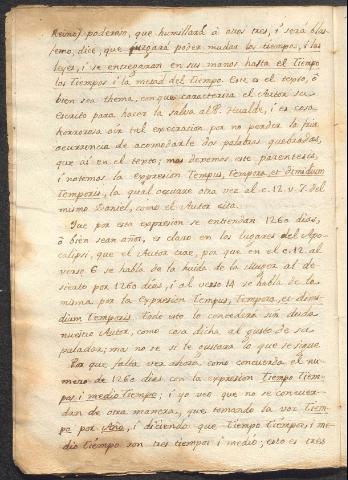 Reino) poderoso, que humillará à otros tres, i será blas-
femo, dice, que juzgará poder mudar los tiempos, i las
leyes, i se entregaran en sus manos hasta el Tiempo
los Tiempos i la metad del Tiempo. Este es el texto, ò
bien sea thema, conque caracteriza el Autor su
Escrito para hacer la salva al P. Itualde, i es cosa
horrorosa oir tal execracion por no perder la
ocurrencia de acomodarle dos palabras quebradas,
que asi en el texto; mas deremos este parentesis,
i notemos la expresion Tempus, Tempora, et dimidium
Temporis, la qual ocurre otra vez al c. 12. v. 7. del
mismo Daniel, como el Autor cita.
Que por esta expresion se entiendan 1260 dias,
ò bien sean años, es claro en los lugares del Apo-
calipsi, que el Autor trae, por que en el c. 12. al
verso 6 se habla de la huida de la Muger al de-
sierto por 1260 dias, i al verso 14 se habla de la
misma por la expresion Tempus, Tempora, et dimi-
dium Temporis. Todo esto lo concederá sin duda
nuestro Autor, como cosa dicha al gusto de su
paladar; ma no se si le gustará lo que se sigue.
Por que falta ver ahora, como concuerda el nu-
mero de 1260 dias con la expresion Tiempo Tiem-
pos i medio Tiempo; i yo veo que no se concuer-
dan de otra manera, que tomando la voz Tiem-
po por Año, i diciendo que Tiempo Tiempos, i me-
dio tiempo son tres tiempos i medio; esto es tres